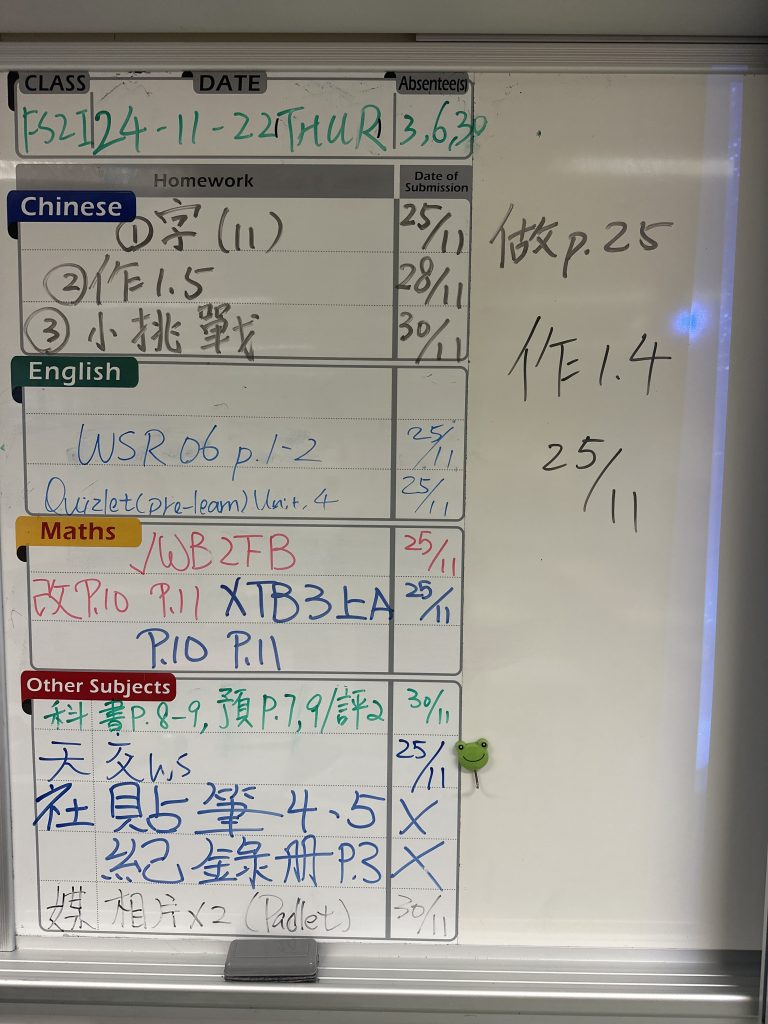 CLASS DATE Absentee(s)
FS2I 24-11-22 THUR 3,6,30
Homework Date of Submission
Chinese
①字(11) 25/11
②作1.5 28/11
③小挑戰 30/11
English
WSR 06 p.1-2 25/11
Quizlet(pre-learn) Unit. 4 25/11
Maths
√WB2FB 25/11
改P.10 P.11 XTB3上A 25/11
P.10 P.11
Other Subjects
科 書P.8-9, 預P.7,9/評2 30/11
天 交w,s 25/11
社 貼筆4、5 X
紀錄册P.3 X
媒 相片x2 (Padlet) 30/11
做p.25
作1.4
25/11